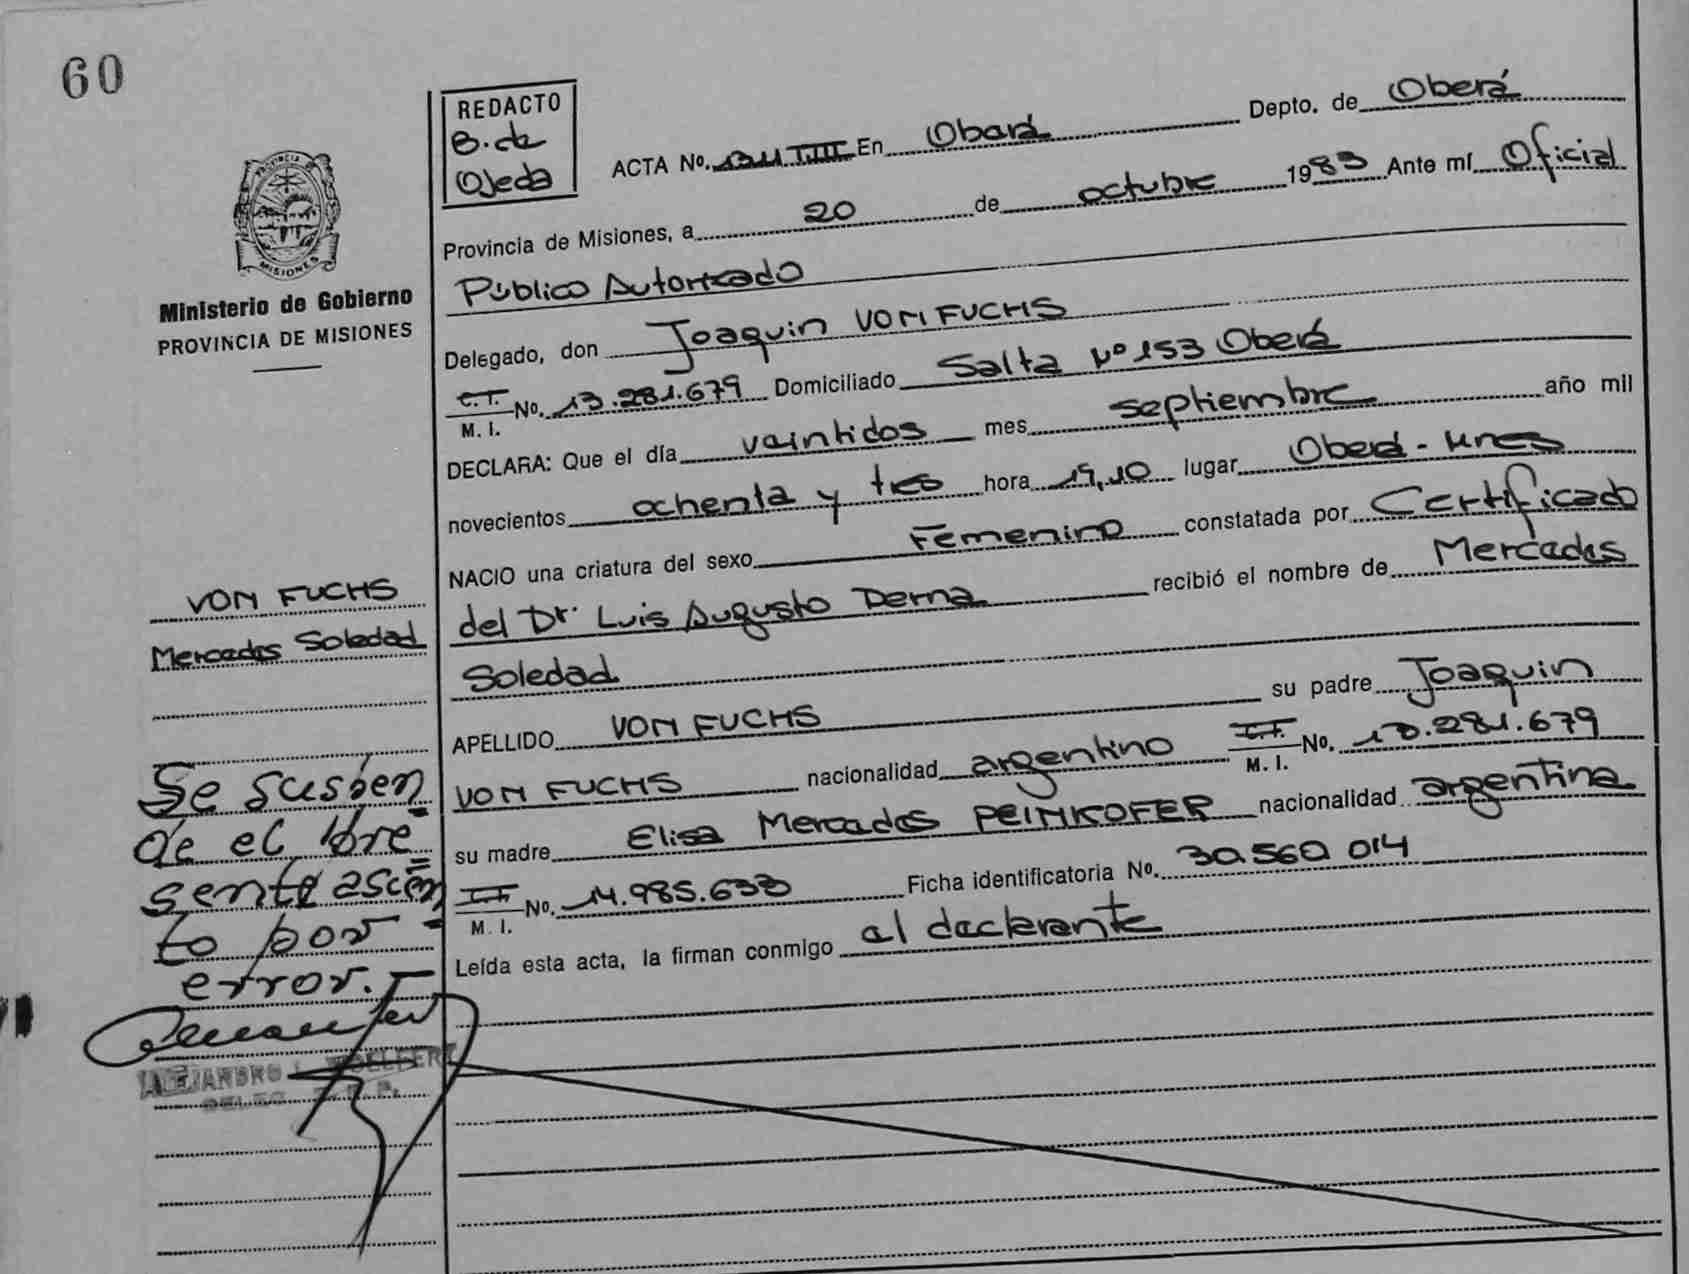 60
REDACTO
B. de
Ojeda
ACTA No. En Oberá Depto. de Oberá
Provincia de Misiones, a 20 de octubre 1983 Ante mí Oficial
Público Autorizado
Delegado, don Joaquin VON FUCHS
No. 13.281.679 Domiciliado Salta Nº 153 Oberá
M. I.
DECLARA: Que el día veintidos mes septiembre año mil
novecientos ochenta y tres hora 19,10 lugar Oberá - Mnes
NACIO una criatura del sexo Femenino constatada por Certificado
del Dr. Luis Augusto Derna recibió el nombre de Mercedes
Soledad
APELLIDO VON FUCHS su padre Joaquin
VON FUCHS nacionalidad argentino No. 13.281.679
M. I.
su madre Elisa Mercedes PEINKOFER nacionalidad argentina
No. 14.985.633 Ficha identificatoria No. 30.560.014
M. I.
Leída esta acta, la firman conmigo el declarante
PROVINCIA
MISIONES
Ministerio de Gobierno
PROVINCIA DE MISIONES
VON FUCHS
Mercedes Soledad
Se suspen
de el pre
sente ascen
to por
error.
ALEJANDRO